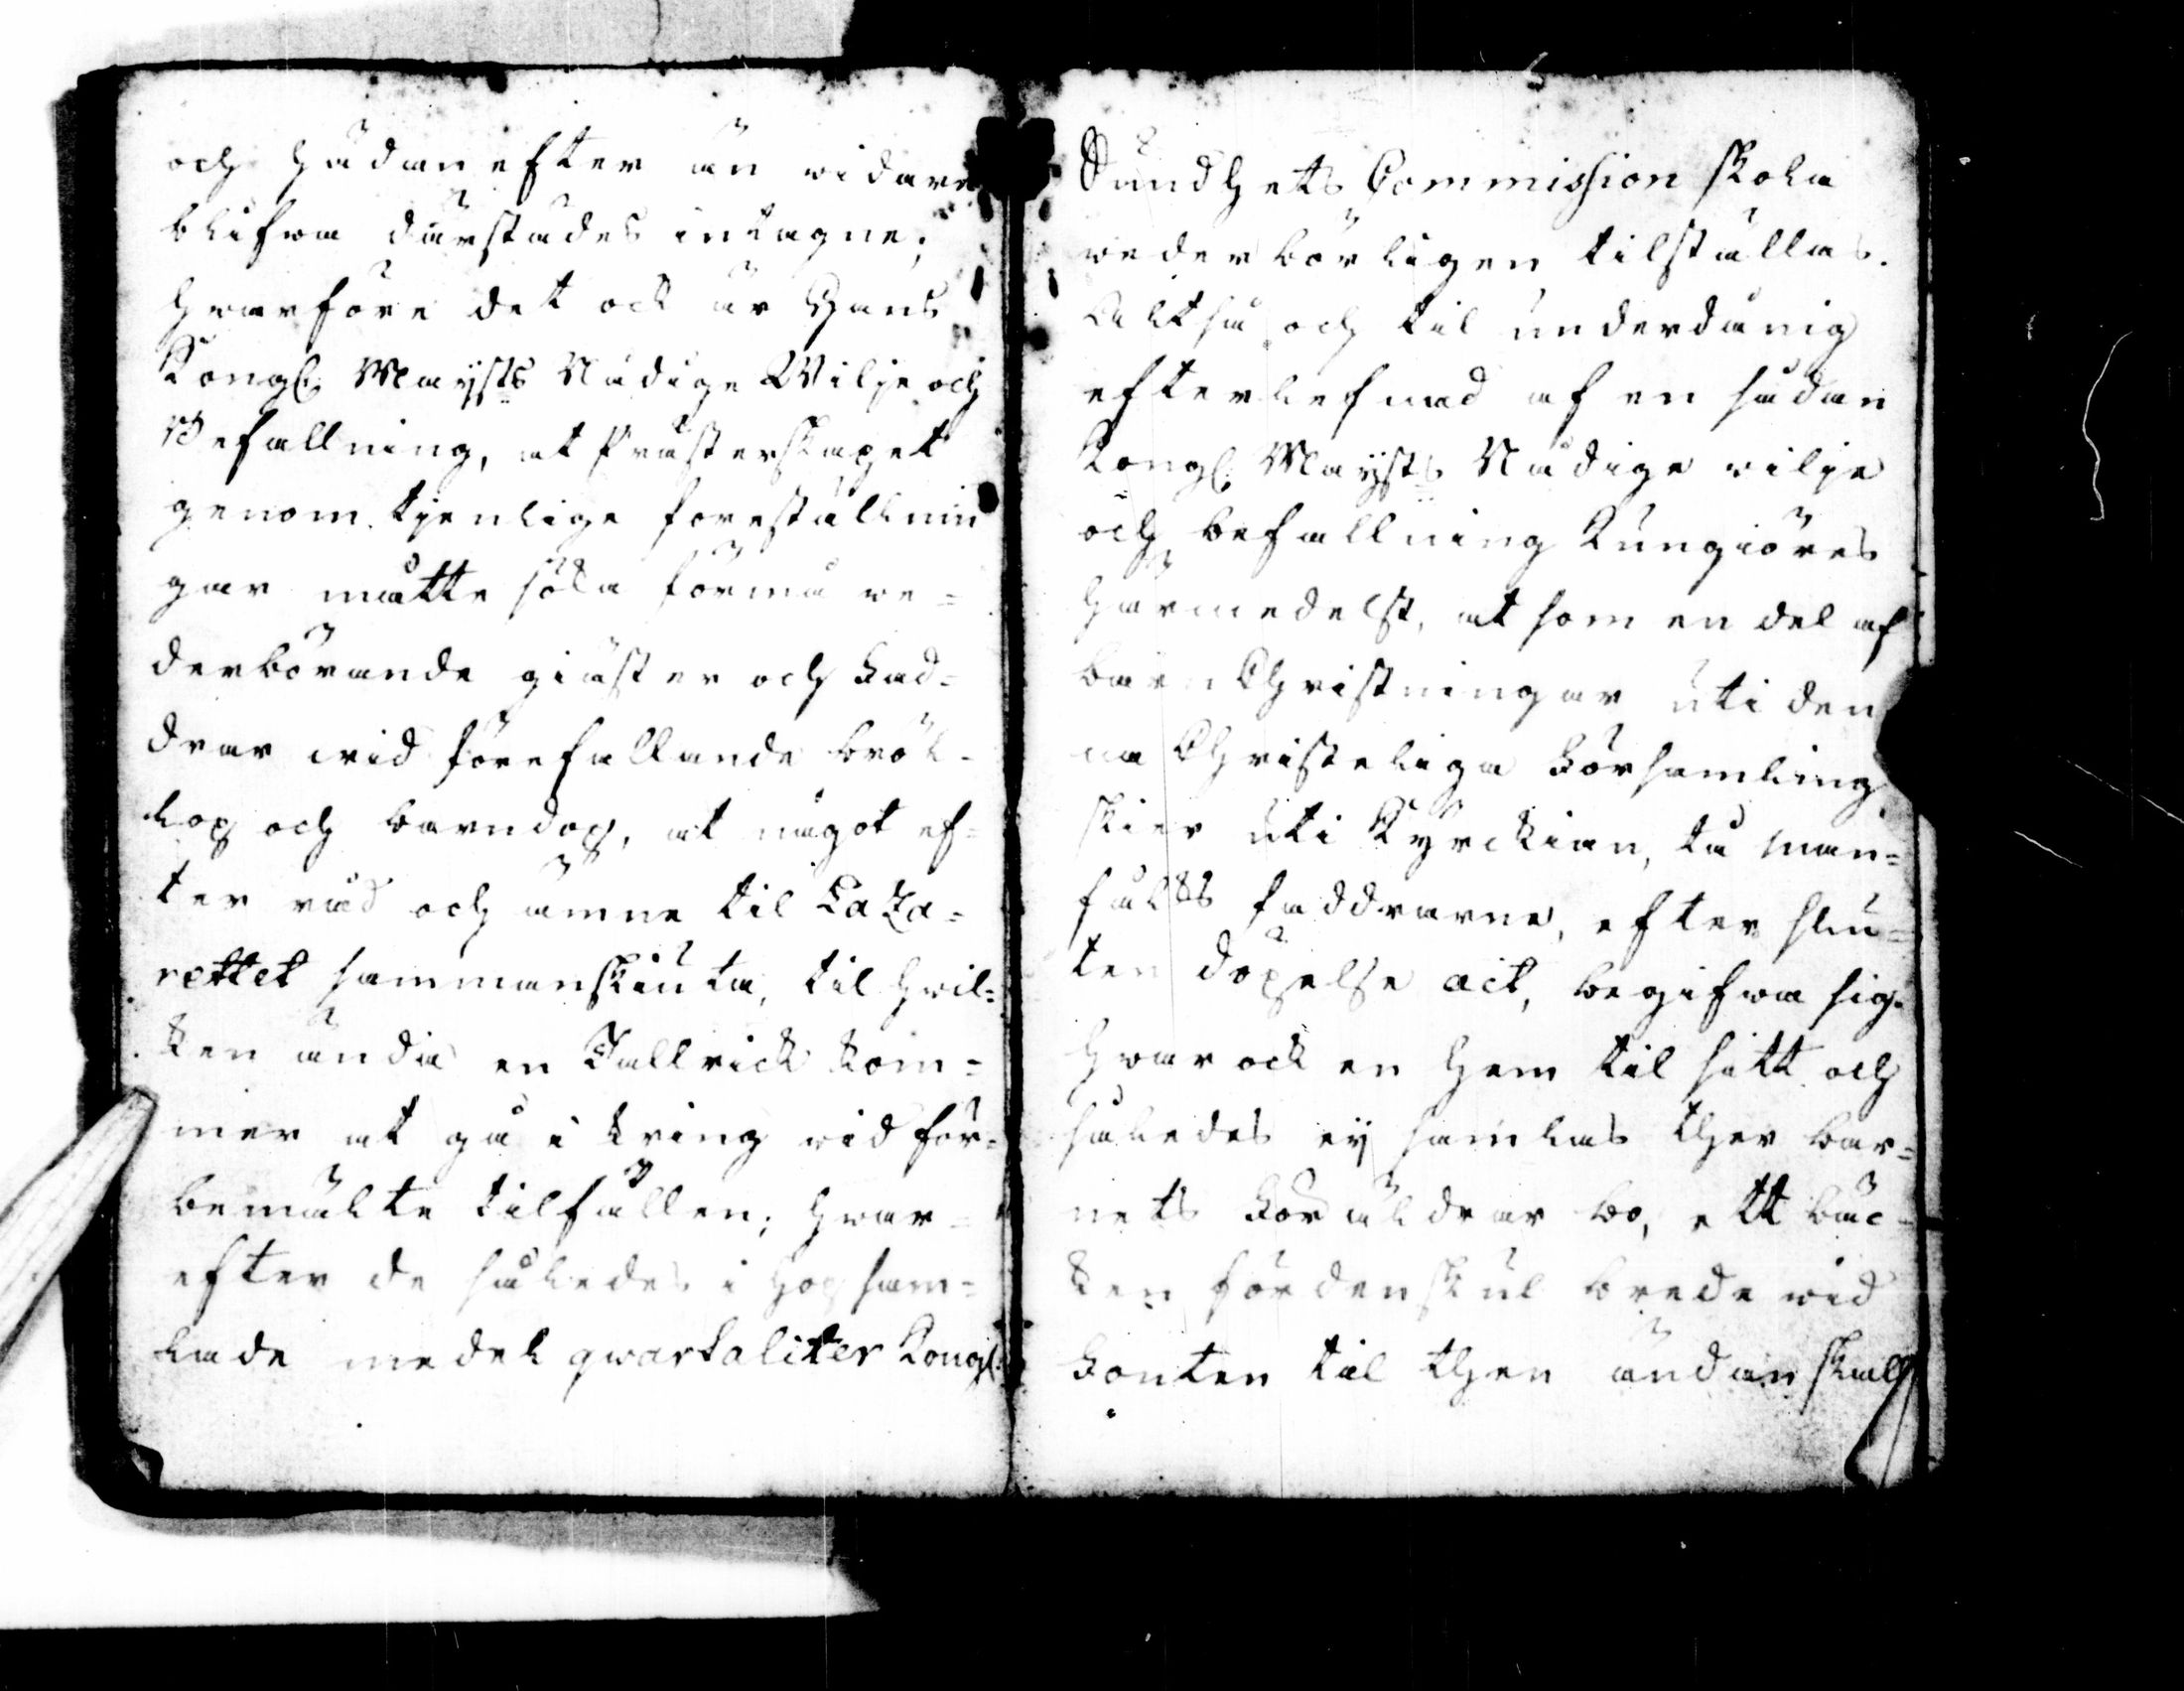 och hädanefter än widare
blifwa därstädes intagne;
hwarföre det ock är Hans
Kongl: Mayts Nådige Wilje och
Befallning, at Prästerskapet
genom tjenlige föreställnin
gar måtte söka förmå we=
derbörande giäster och Fad=
drar wid förefallande bröl-
lop och barndop, at något ef=
ter råd och ämne til Laza=
rettet sammanskiuta, til hwil=
ken ända en Tallrick kom=
mer at gå i kring wid för=
bemälte tilfällen; hwar=
efter de således i hopsam=
lade medel qwartaliter Kongl:
Sundhets Commission skola
wederbörligen tilställas.
Altså och til underdånig
efterlefnad af en sådan
Kongl: Mayts Nådige wilje
och befallning kungiöres
härmedelst, at som en del af
barn Christningar uti den
na Christeliga Församling
skier uti Kyrckian, tå man=
falds faddrarne, efter slu=
ten döpelse act, begifwa sig
hwar ock en hem til sitt och
således ey samlas ther bar=
nets Föräldrar bo, ett bäc=
ken fördenskul brede wid
Fonten til then ändan skall